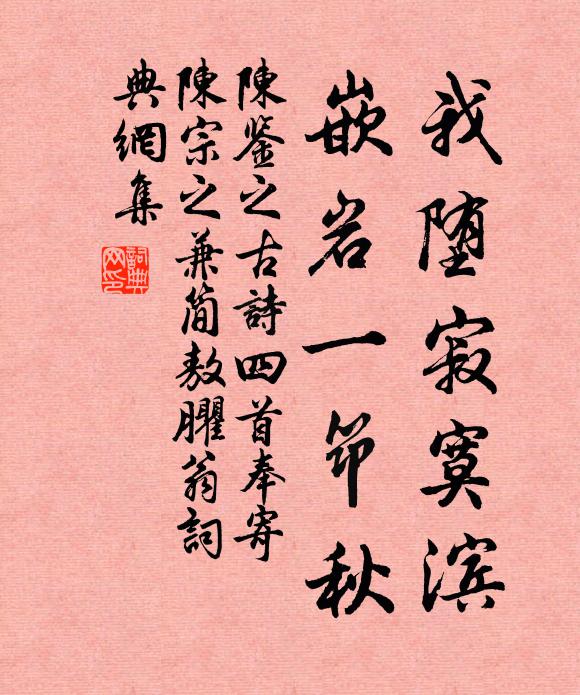 我堕寂寞滨
嵌岩一节秋
陳鉴之古詩四首奉寄
陳宗之兼簡敖臞翁詞
典網集
詞典
网印